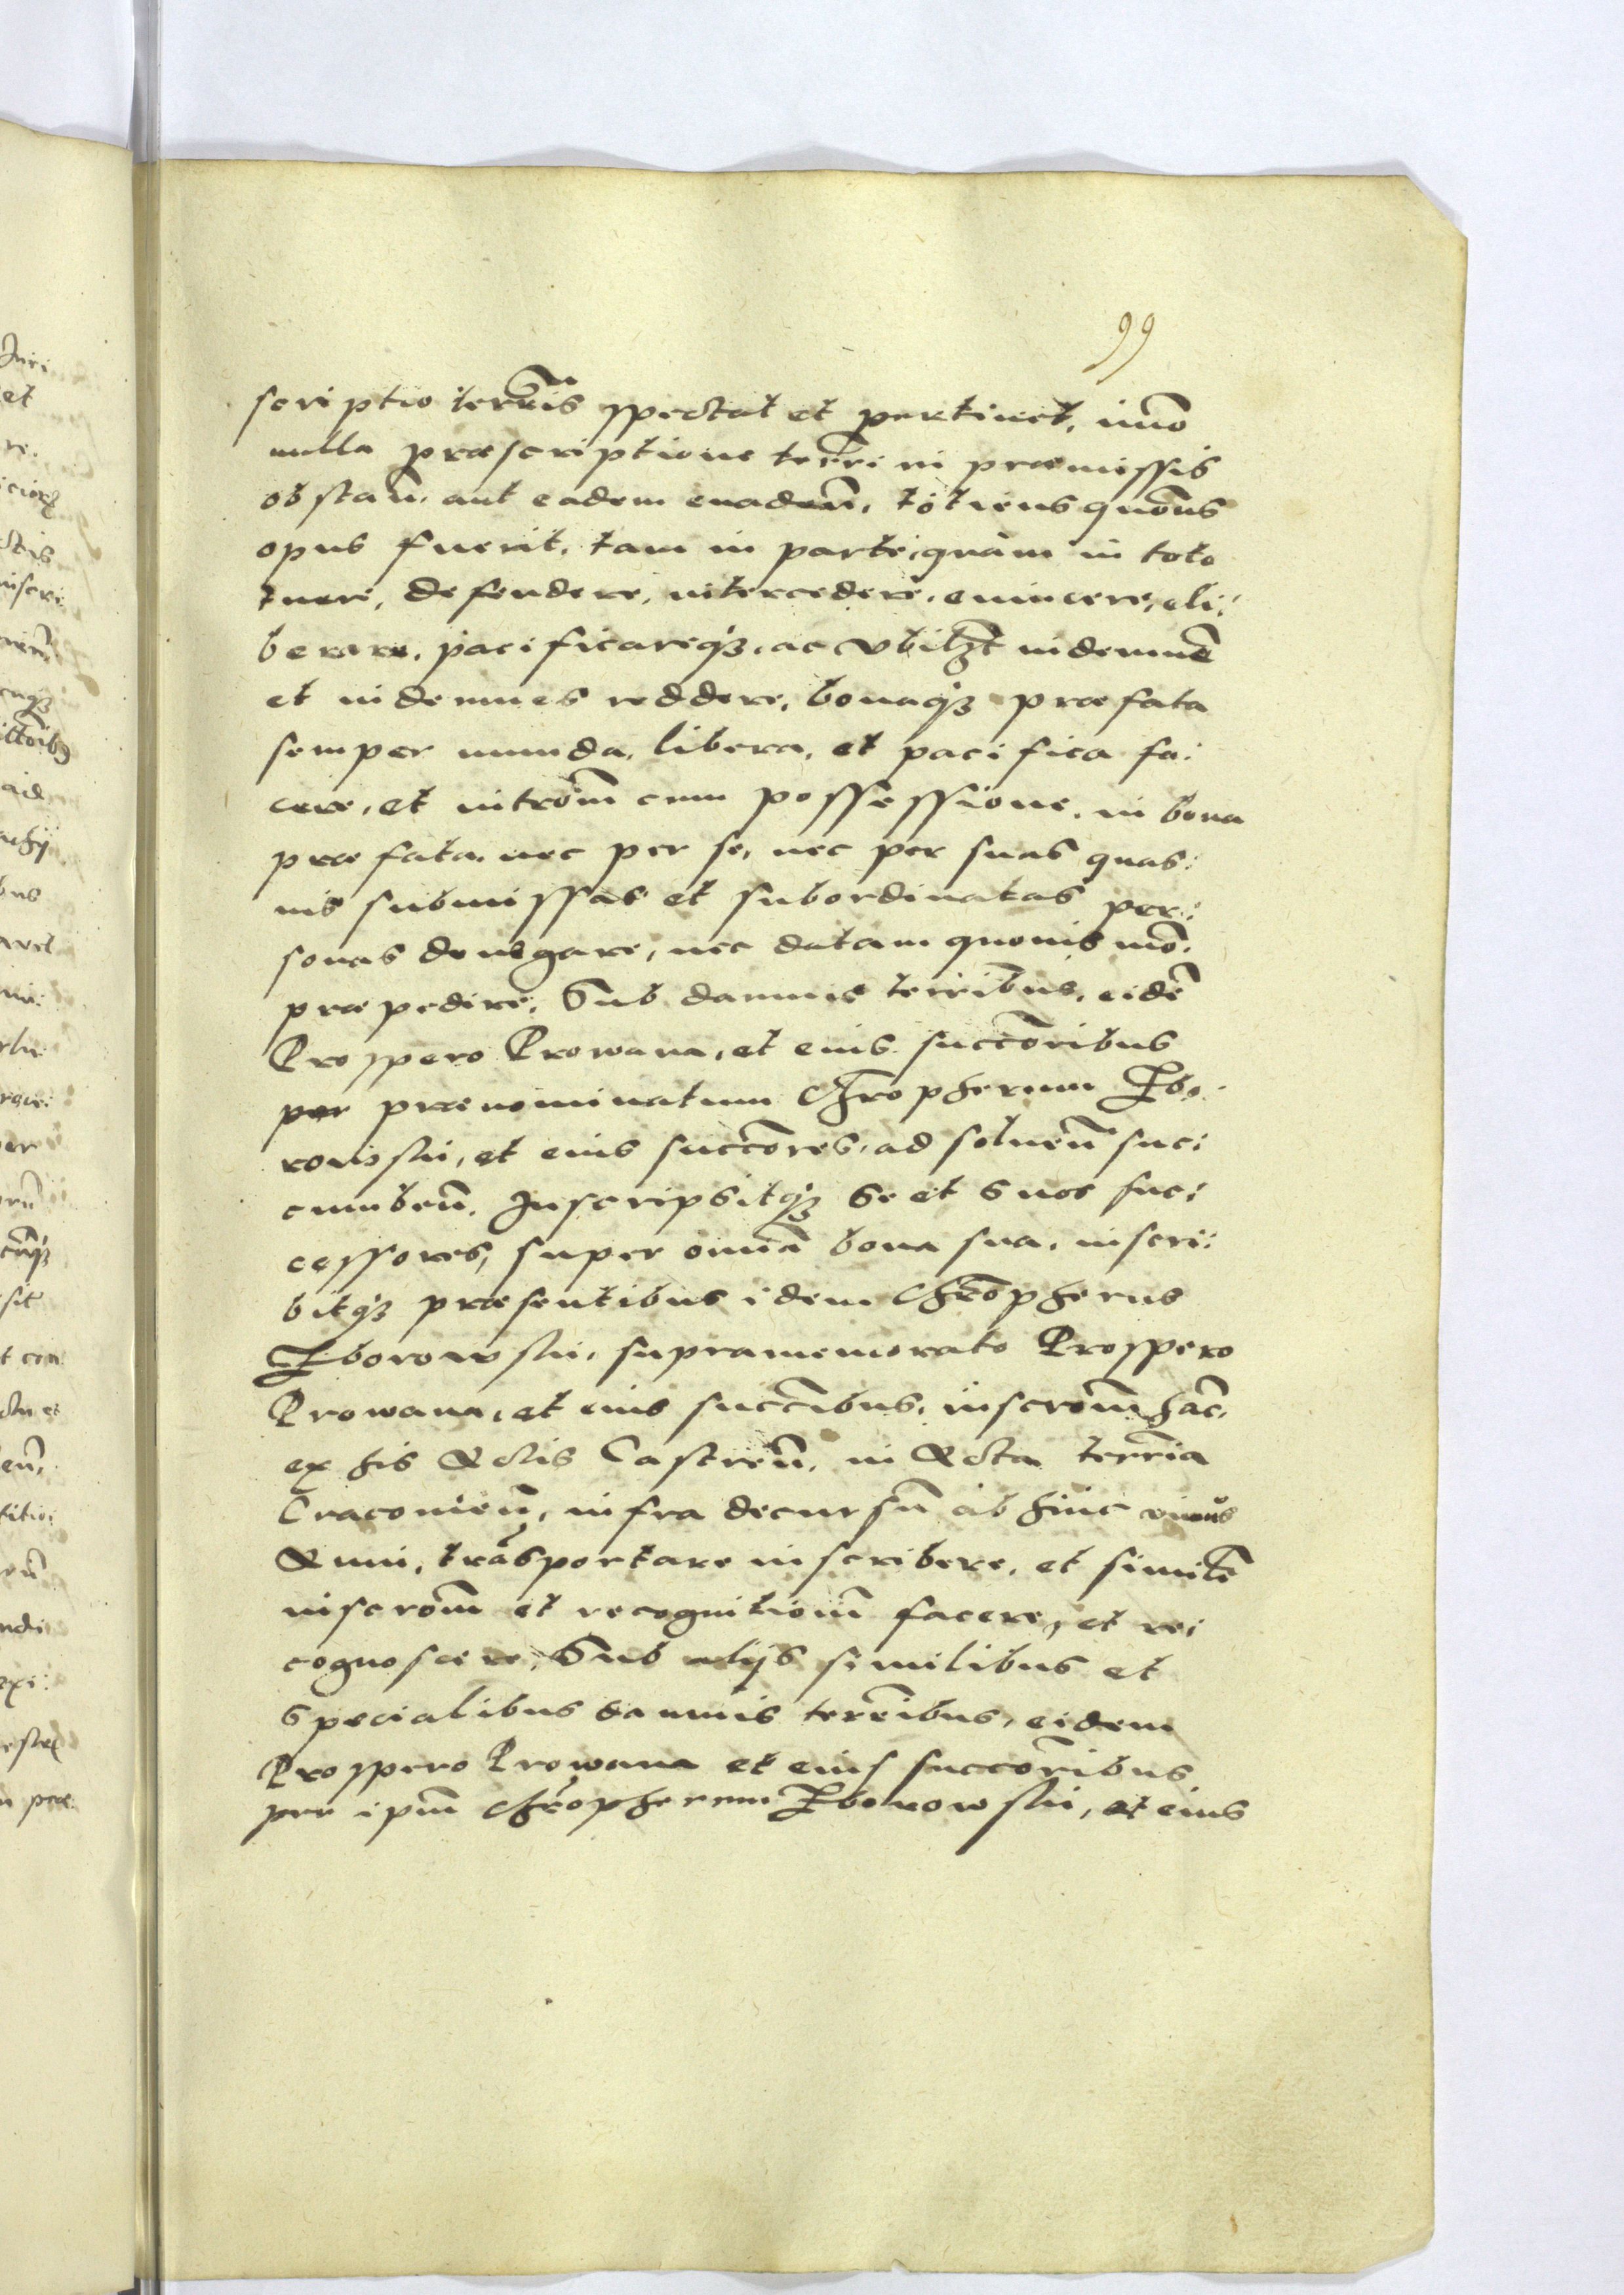 99
scriptio terrĩs spectat et pertinet, imõ
nulla præscriptione terrĩ in præmissis
obstañ. aut eadem euadeñ, totiens quõns
opus fuerit, tam in parte, quàm in toto
tueri, defendere, intercedere, euincere, eli:
berare, pacificareq́ꝫ, ac vbilꝫt indemnẽ
et indemnes reddere, bonaq́ꝫ præfata
semper munda, libera, et pacifica fa:
cere, et intrõm cum possessione, in bona
præfata, nec per se, nec per suas quas:
uis submissas et subordinatas per:
sonas denegare, nec datam quouis mõ.
præpedire, Sub damnis terrĩbus, eidẽ
Prospero Prowana, et eius succõribus
per prænominatum Chrõpherum Zbo:
rowski, et eius succõres, ad solueñ suc:
cumbeñ. Inscripsitq́ꝫ se et suos suc:
cessores, super omĩa bona sua, inscri:
bitq́ꝫ præsentibus idem Chrõpherus
Zborowski, supramemorato Prospero
Prowana, et eius succr̃ibus, inscrõm hãc,
ex his Actis Castreñ, in Acta terrĩa
Cracouieñ, infra decursũ ab hinc vniús
Anni, trãsportare inscribere, et similẽ
inscrõm et recognitionẽ facere, et re:
cognoscere, Sub alijs similibus et
specialibus damnis terrẽibus, eidem
Prospero Prowana et eius succõribus
per ipm̃ Chrõpherum Zborowski, et eius